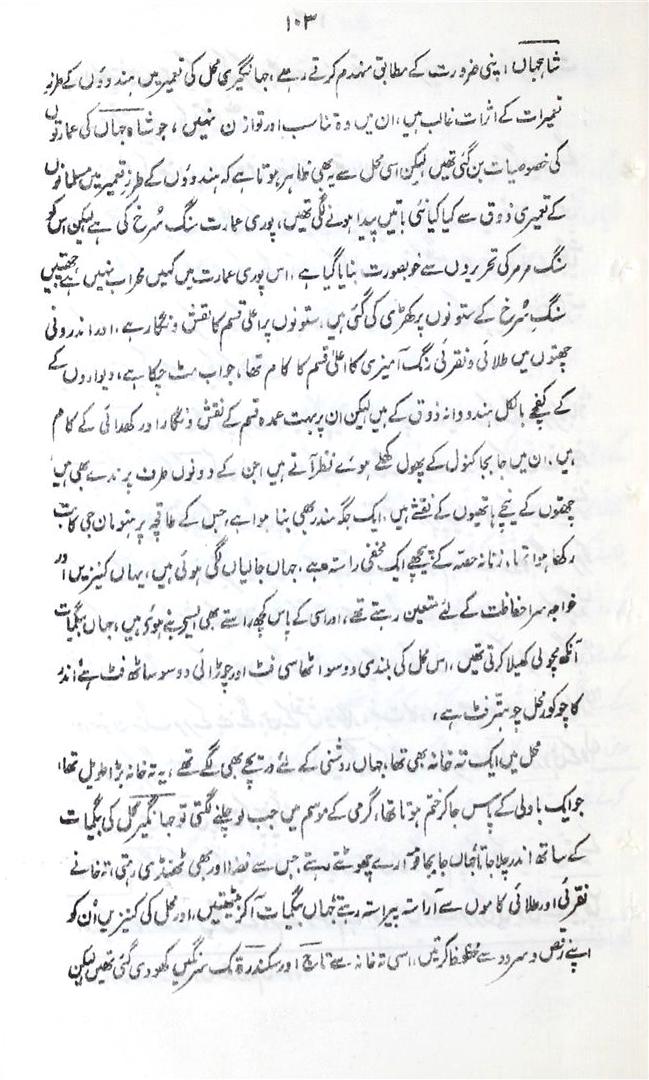 ۱۰۳
شاہجہاں، اپنی ضرورت کے مطابق منہدم کرتے رہے، جہانگیری محل کی تعمیر میں ہندوؤں کے طرز
تعمیرات کے اثرات غالب ہیں، ان میں وہ تناسب اور توازن نہیں، جو شاہ جہاں کی عمارتوں
کی خصوصیات بن گئی تھیں، لیکن اسی محل سے یہ بھی ظاہر ہوتا ہے کہ ہندوؤں کے طرز تعمیر میں مسلمانوں
کے تعمیری ذوق سے کیا کیا نئی باتیں پیدا ہونے لگی تھیں، پوری عمارت سنگ سُرخ کی ہے لیکن اس کو
سنگ مرمر کی تحریروں سے خوبصورت بنایا گیا ہے، اس پوری عمارت میں کہیں محراب نہیں ہے، چھتیں
سنگ سُرخ کے ستونوں پر کھڑی کی گئی ہیں، ستونوں پر اعلیٰ قسم کا نقش و نگار ہے، اور اندرونی
چھتوں میں طلائی و نقرئی رنگ آمیزی کا اعلیٰ قسم کا کام تھا، جو اب مٹ چکا ہے، دیواروں کے
کے بالکل ہندووانہ ذوق کے ہیں لیکن ان پر بہت عمدہ قسم کے نقش و نگار اور کھدائی کے کام
ہیں، ان میں جا بجا کنول کے پھول کھلے ہوئے نظر آتے ہیں جن کے دونوں طرف پرندے بھی ہیں
چھتوں کے نیچے ہاتھیوں کے نقشے ہیں، ایک جگہ مندر بھی بنا ہوا ہے، جس کے طاقچہ پر ہنومان جی کا بت
رکھا ہوا تھا، زنانہ حصہ کے پیچھے ایک مخفی راستہ ہے، جہاں جالیاں لگی ہوئی ہیں، یہاں کنیزیں اور
خواجہ سرا حفاظت کے لئے متعین رہتے تھے، اور اسی کے پاس کچھ راستے بھی ایسے بنے ہوئی ہیں، جہاں بیگمات
آنکھ مچولی کھیلا کرتی تھیں، اس محل کی بلندی دوسو اٹھاسی فٹ اور چوڑائی دوسو ساٹھ فٹ ہے، اندر
کا چوکور محل چوہتر فٹ ہے،
محل میں ایک تہ خانہ بھی تھا، جہاں روشنی کے لئے دریچے بھی لگے تھے، یہ تہ خانہ بڑا طویل تھا،
جو ایک باولی کے پاس جا کر ختم ہوتا تھا، گرمی کے موسم میں جب لو چلنے لگتی تو جہانگیر محل کی بیگمات
کے ساتھ اندر چلا جاتا، جہاں جا بجا فوّارے چھوٹتے رہتے، جس سے فضا اور بھی ٹھنڈی رہتی، تہ خانے
نقرئی اور طلائی کاموں سے آراستہ پیراستہ رہتے، جہاں بیگمات آ کر بیٹھتیں، اور محل کی کنیزیں اُن کو
اپنے رقص و سرود سے محظوظ کرتیں، اسی تہ خانہ سے تاج اور سکندرہ تک سرنگیں کھودی گئی تھیں لیکن